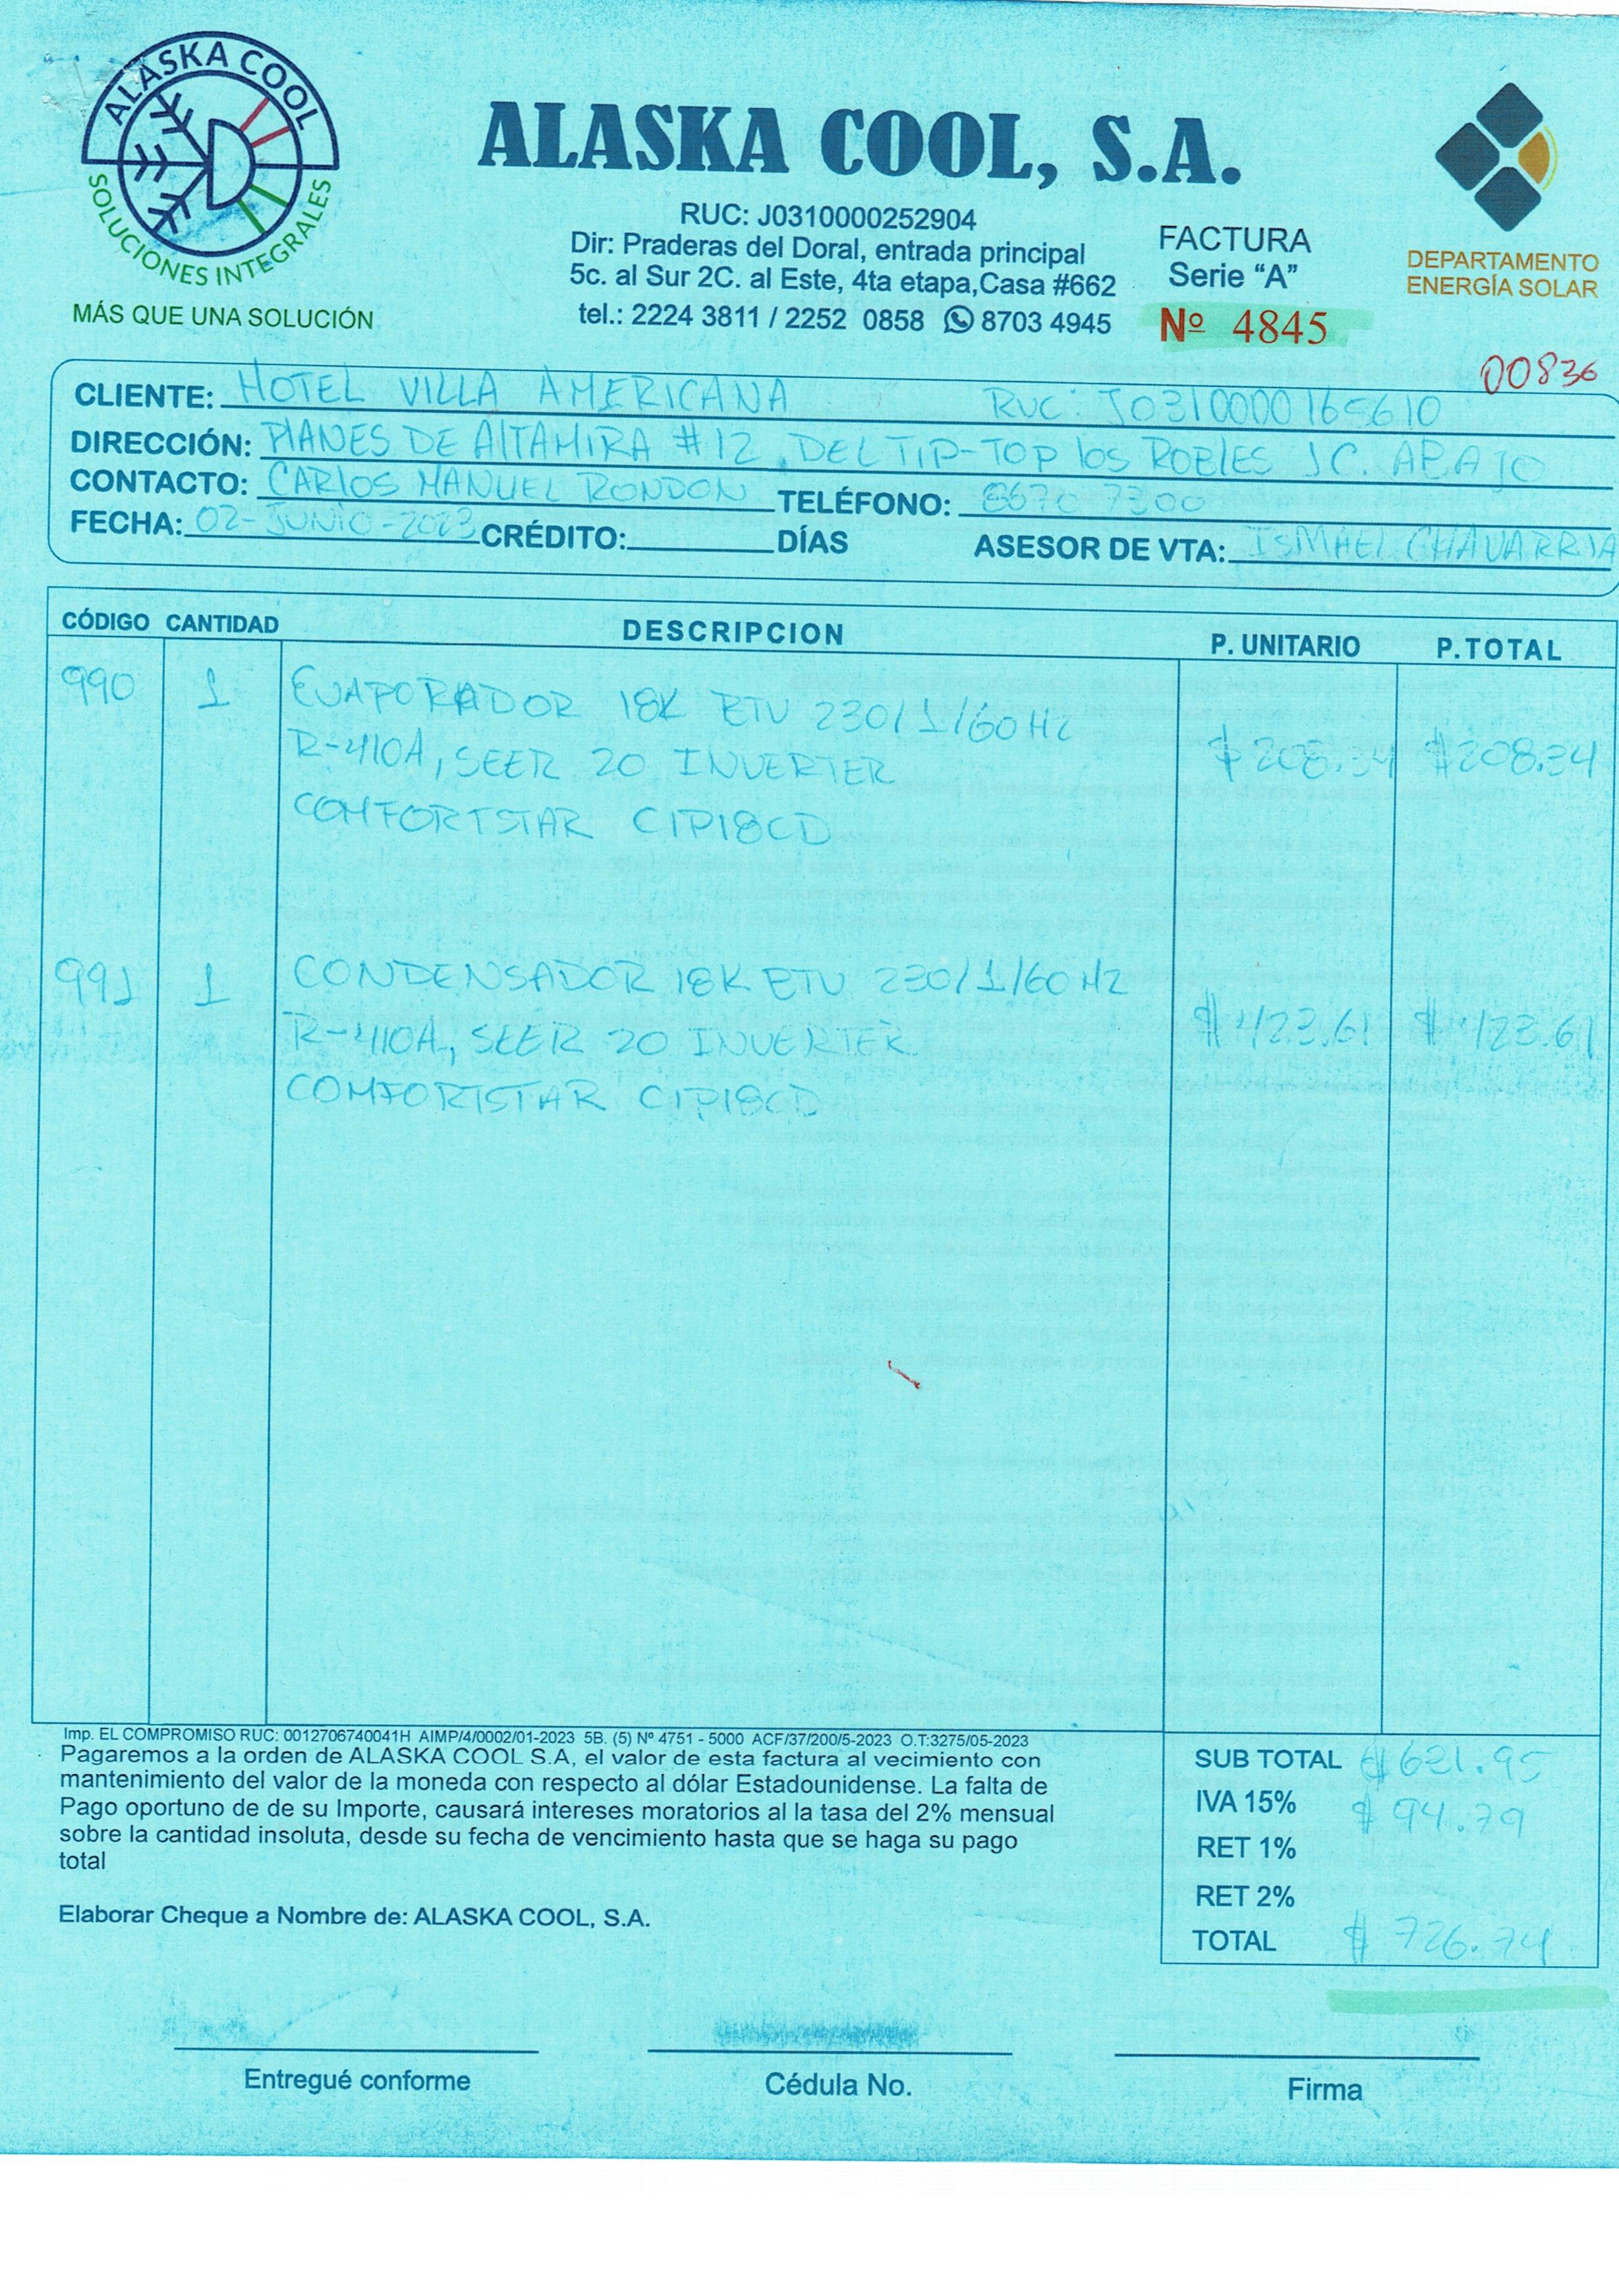 ALASKA COOL
SOLUCIONES INTEGRALES
MÁS QUE UNA SOLUCIÓN
ALASKA COOL, S.A.
RUC: J0310000252904
Dir: Praderas del Doral, entrada principal
5c. al Sur 2C. al Este, 4ta etapa,Casa #662
tel.: 2224 3811 / 2252 0858 8703 4945
FACTURA
Serie “A”
Nº 4845
DEPARTAMENTO
ENERGÍA SOLAR
00836
CLIENTE: HOTEL VILLA AMERICANA RUC: J0310000165610
DIRECCIÓN: PlANES DE AlTAMIRA #12, DEL TIP-TOP los ROBlES 1C. ABAJO
CONTACTO: CARlOS MANUEL RONDON TELÉFONO: 8670 7300
FECHA: 02-JUNIO-2023 CRÉDITO: DÍAS ASESOR DE VTA: ISMAEL CHAVARRIA
CÓDIGO CANTIDAD DESCRIPCION P. UNITARIO P.TOTAL
990 1 EVAPORADOR 18K BTU 230/1/60HZ
R-410A, SEER 20 INVERTER $208.34 $208.34
COMFORTSTAR CIP18CD
991 1 CONDENSADOR 18K BTU 230/1/60HZ
R-410A, SEER 20 INVERTER $423.61 $423.61
COMFORTSTAR CIP18CD
Imp. EL COMPROMISO RUC: 0012706740041H AIMP/4/0002/01-2023 5B. (5) Nº 4751 - 5000 ACF/37/200/5-2023 O.T:3275/05-2023
Pagaremos a la orden de ALASKA COOL S.A, el valor de esta factura al vecimiento con
mantenimiento del valor de la moneda con respecto al dólar Estadounidense. La falta de
Pago oportuno de de su Importe, causará intereses moratorios al la tasa del 2% mensual
sobre la cantidad insoluta, desde su fecha de vencimiento hasta que se haga su pago
total
Elaborar Cheque a Nombre de: ALASKA COOL, S.A.
SUB TOTAL $ 621.95
IVA 15% $ 94.79
RET 1%
RET 2%
TOTAL $ 726.74
Entregué conforme
Cédula No.
Firma